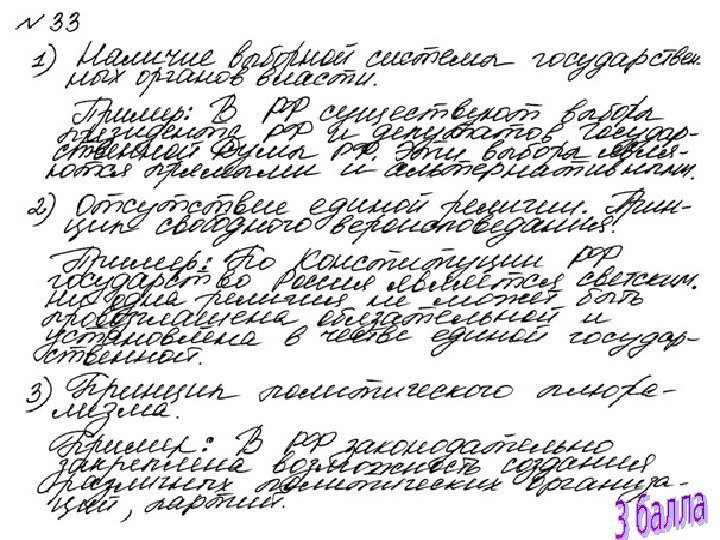 № 33
1) Наличие выборной системы государствен-
ных органов власти.
Пример: В РФ существуют выборы
президента РФ и депутатов Государ-
ственной Думы РФ. Эти выборы явля-
ются прямыми и альтернативными.
2) Отсутствие единой религии. Прин-
цип свободного вероисповедания.
Пример: По Конституции РФ
государство Россия является светским.
Ни одна религия не может быть
провозглашена обязательной и
установлена в честве единой государ-
ственной.
3) Принцип политического плюра-
лизма.
Пример: В РФ законодательно
закреплена возможность создания
различных политических организа-
ций, партий.
3 балла